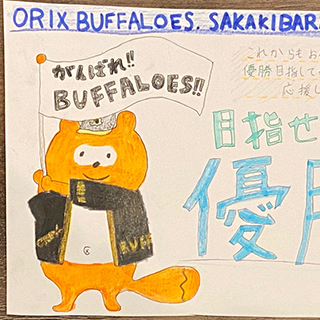 ORIX BUFFALOES. SAKAKIBAR
がんばれ!!
BUFFALOES!!
これからもお
優勝目指して
応援し
目指せ
優
ORIX
BUFF